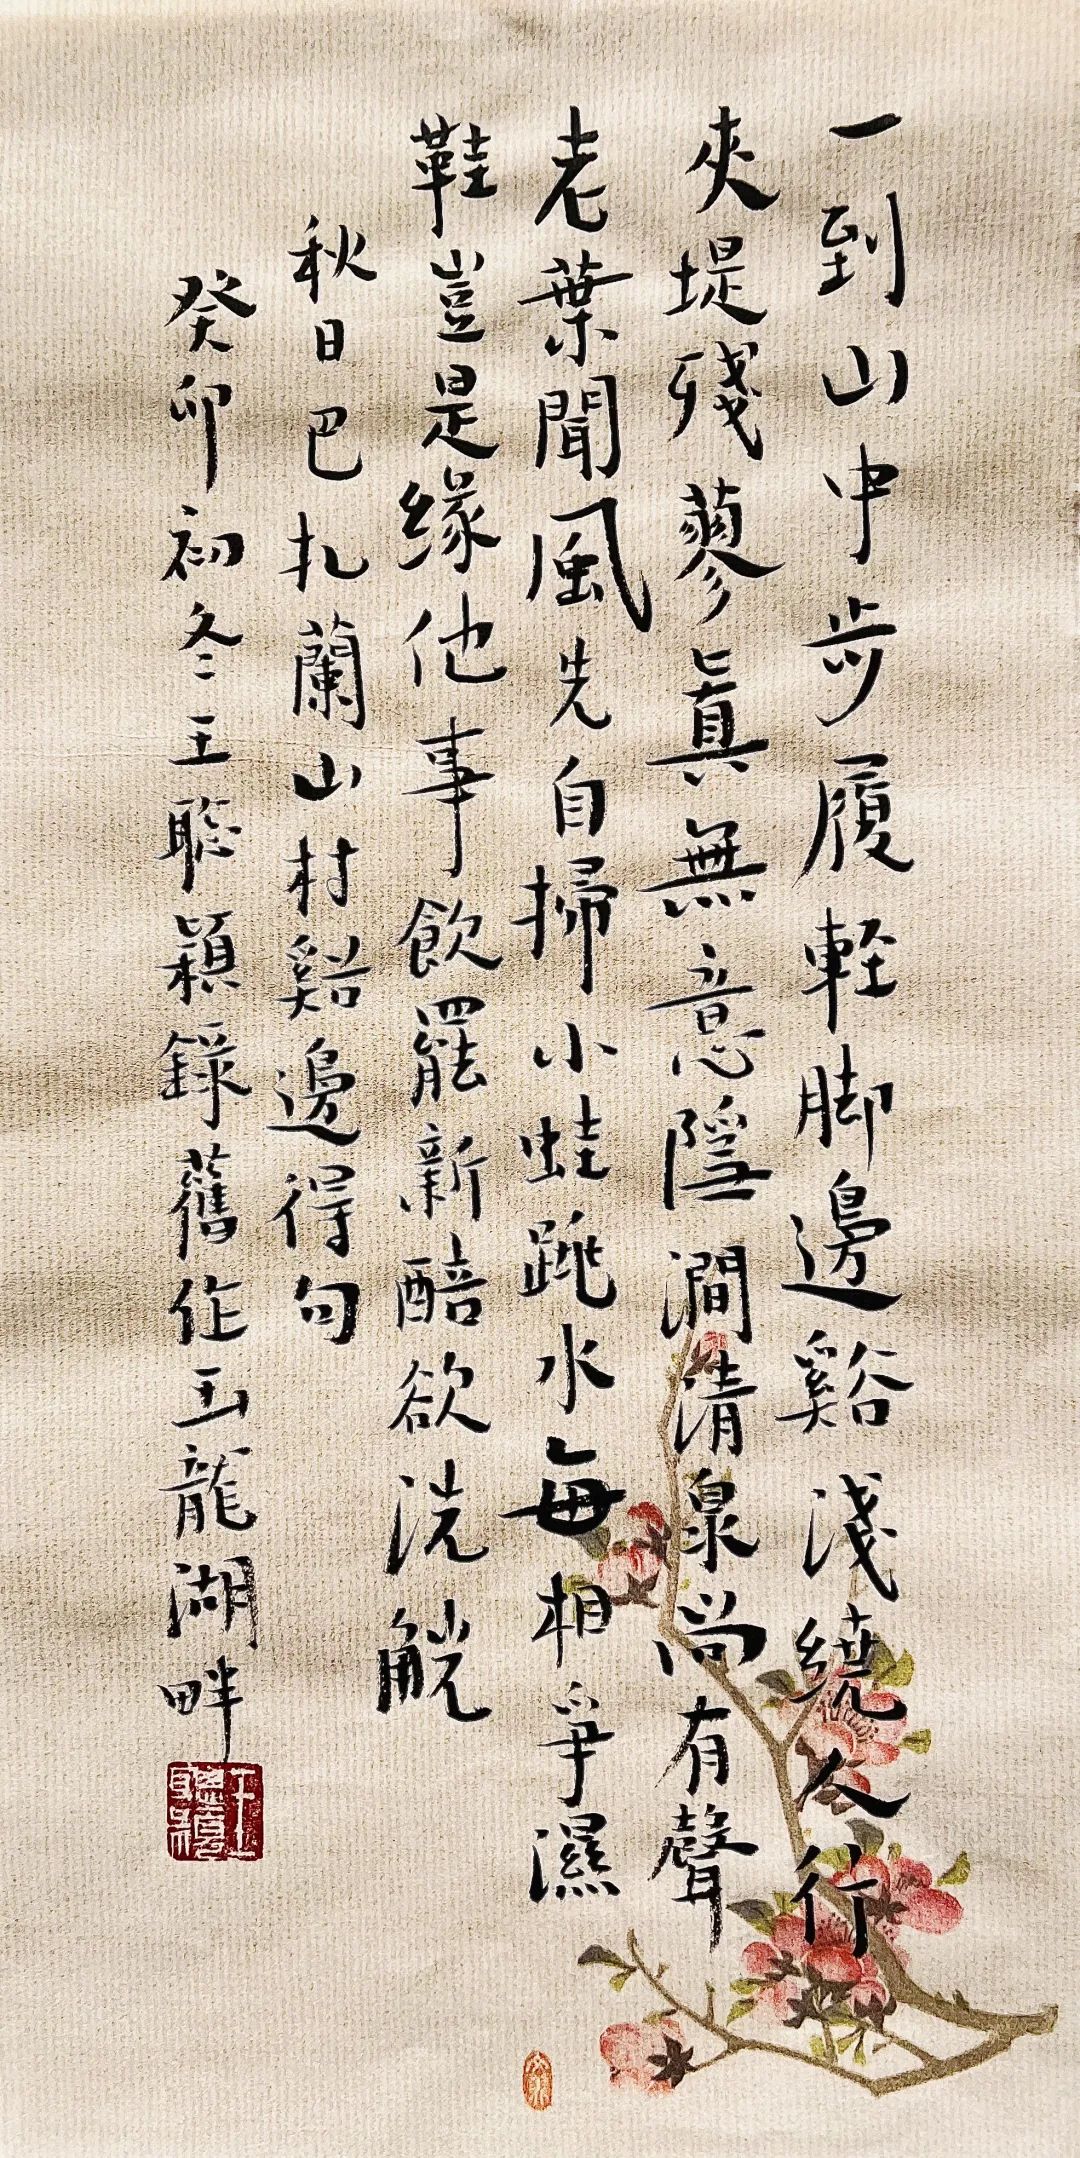 一到山中步履軽脚邊谿淺繞人行
夾堤殘蓼眞無意隱澗清泉尚有聲
老葉聞風先自掃小蛙跳水每相爭濕
鞋豈是缘他事飲罷新醅欲洗觥
秋日巴扎蘭山村谿邊得句
癸卯初冬王聡穎錄舊作玉龍湖畔